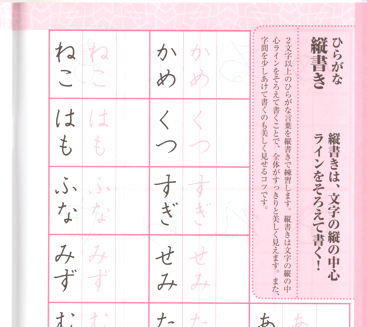 ひらがな
縦書き
縦書きは、文字の縦の中心
ラインをそろえて書く!
2文字以上のひらがな言葉を縦書きで練習します。縦書きは文字の縦の中
心ラインをそろえて書くことで、全体がすっきりと美しく見えます。また、
字間を少しあけて書くのも美しく見せるコツです。
あ
あ
かめ
かめ
くつ
くつ
すぎ
すぎ
せみ
せみ
た
た
ねこ
ねこ
はも
はも
ふな
ふな
みず
みず
む
む